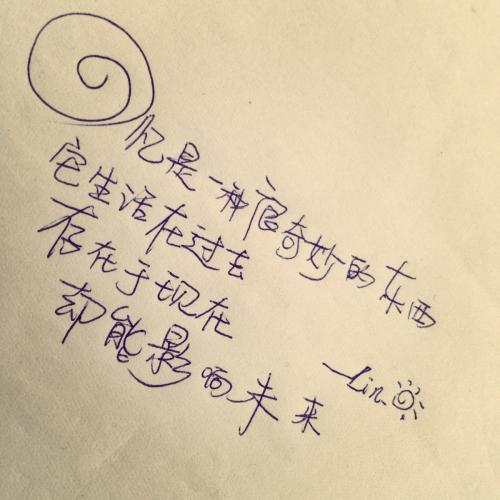 回忆是一种很奇妙的东西
它生活在过去
存在于现在
却能影响未来
—Lin.